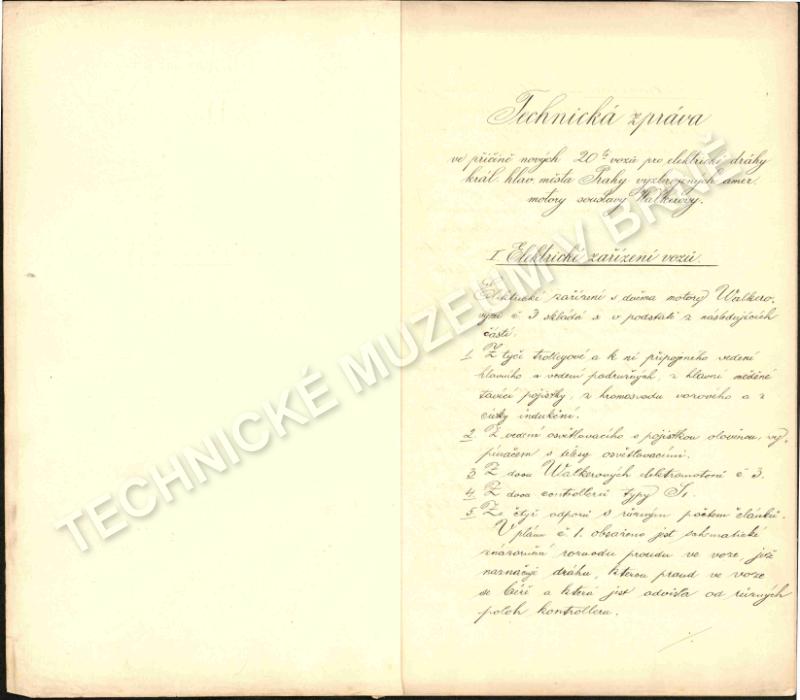 Technická zpráva
ve příčině nových 20ti vozů pro elektrické dráhy
král. hlav. města Prahy vyzbrojených amer.
motory soustavy Walkerovy.
I. Elektrické zařízení vozů.
Elektrické zařízení s dvěma motory Walkero-
vými č 3 skládá se v podstatě z následujících
částí.
1. Z tyče trolleyové a k ní připojeného vedení
hlavního a vedení podružných, z hlavní měděné
tavící pojistky, z hromosvodu vozového a z
cívky indukční.
2. Z vedení osvětlovacího s pojistkou olověnou, vy-
pínačem s tělesy osvětlovacími.
3. Z dvou Walkerových elektromotorů č 3.
4. Z dvou controllerů typy S1.
5. Ze čtyř odporů s různým počtem článků.
V plánu č. 1. obsaženo jest schematické
znázornění rozvodu proudu ve voze, jež
naznačuje dráhu, kterou proud ve voze
se béře a která jest odvislá od různých
poloh kontrolleru.
TECHNICKÉ MUZEUM V BRNĚ